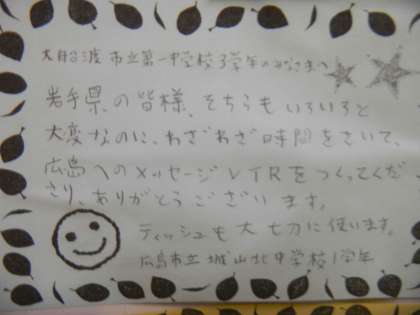 大船渡市立第一中学校3学年のみなさまへ
岩手県の皆様、そちらもいろいろと
大変なのに、わざわざ時間をさいて、
広島へのメッセージVTRをつくってくだ
さり、ありがとうございます。
ティッシュも大切に使います。
広島市立城山北中学校1学年